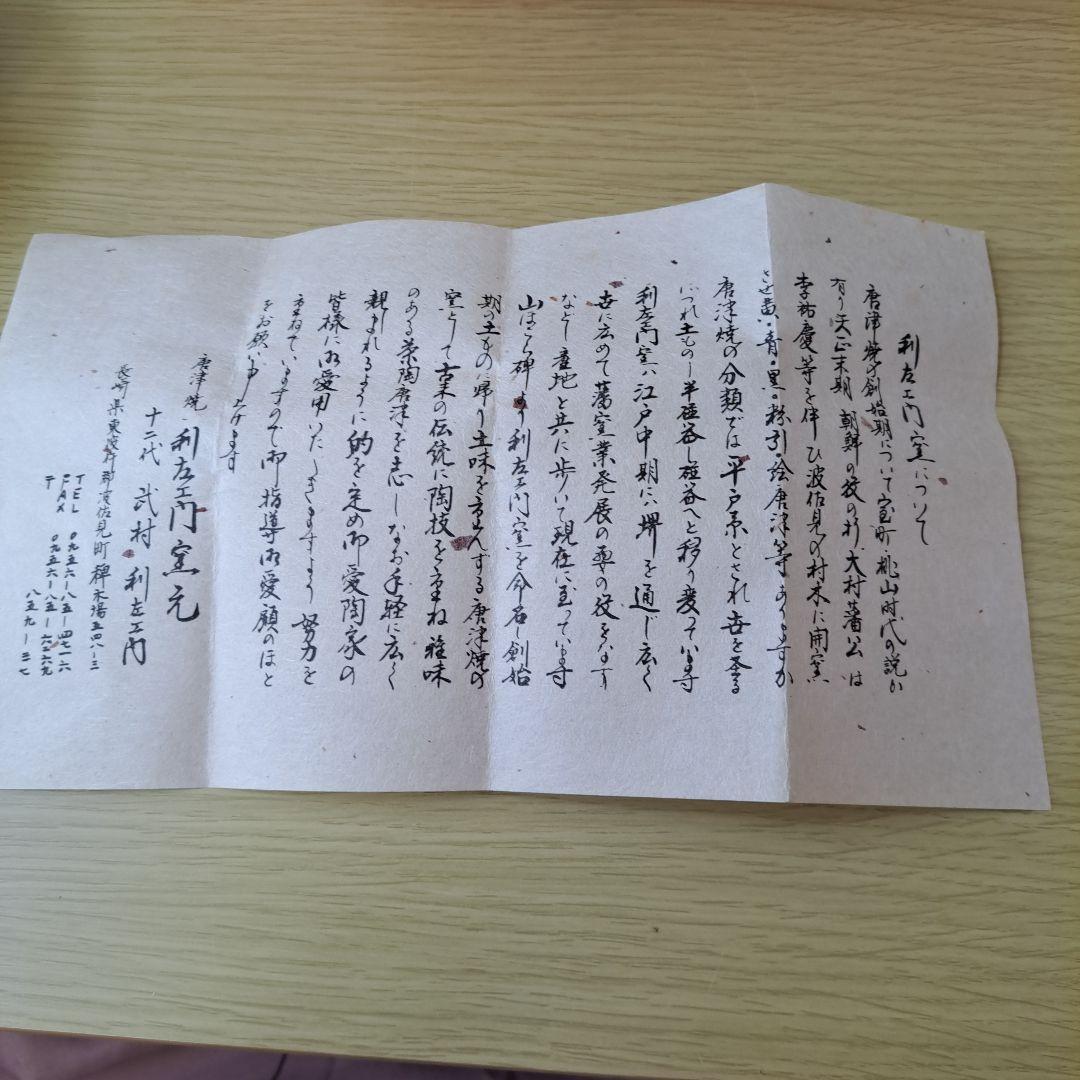 利左エ門窯について
唐津焼の創始期について室町・桃山时代の説が
有り天正末期 朝鮮の役の折、大村藩公は
李祐慶等を伴ひ波佐見の村木に開窯
させ黄・青・黒・粉引・絵唐津等ありますが
唐津焼の分類では平戸系とされ世を登る
につれ土もの半磁器磁器へと移り変っています
利左エ門窯は江戸中期に堺を通じ広く
世に広めて藩窯業発展の専の役をなす
など産地と共に歩いて現在に至っています
山ほこら碑より利左エ門窯を命名し創始
期の土ものに帰り土味を主とする唐津焼の
窯として古来の伝統に陶技を重ね 雅味
のある茶陶唐津を志しなお手軽に広く
親しまれるように的を定め御愛陶家の
皆様に御愛用いただきますよう 努力を
重ねていますので御指導御愛顧のほど
をお願い申し上げます
唐津焼 利左エ門窯元
十二代 武村利左エ門
長崎県東彼杵郡波佐見町稗木場五四八-三
TEL 〇九五六-八五-四七一六
FAX 〇九五六-八五-六二六九
〒 八五九-三七